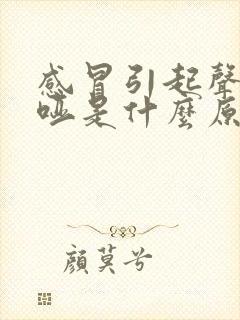 感冒引起聲
啞是什麼原
顏莫兮